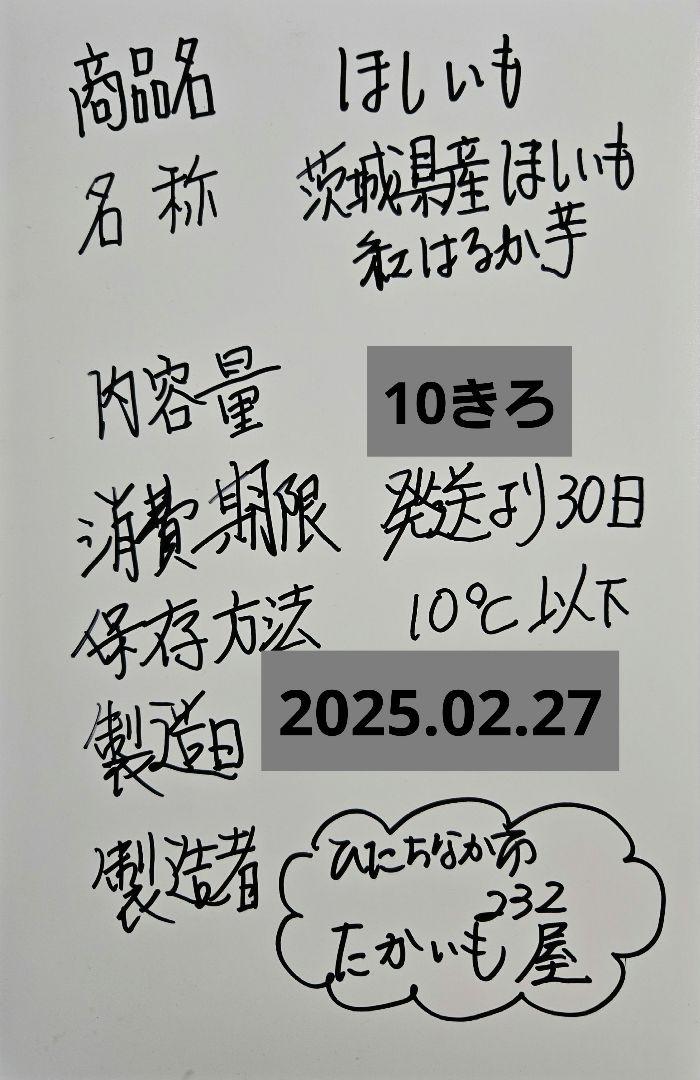 商品名 ほしいも
名称 茨城県産ほしいも
紅はるか芋
内容量 10きろ
消費期限 発送より30日
保存方法 10℃以下
製造日 2025.02.27
製造者 ひたちなか市
232
たかいも屋